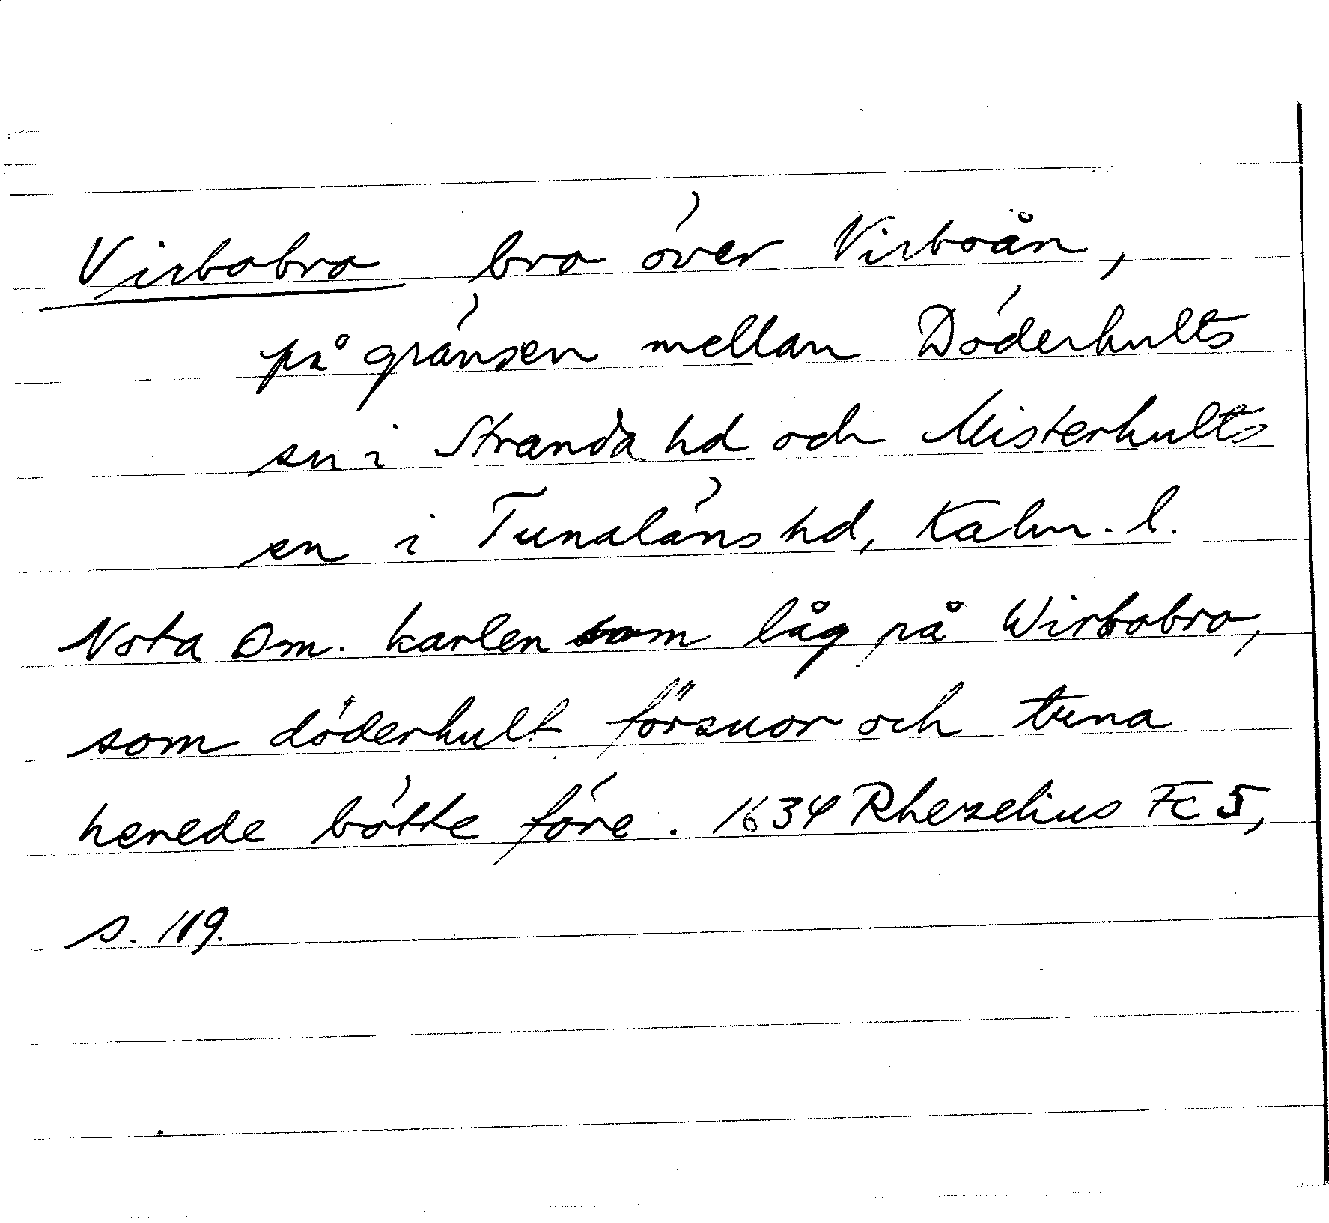 Virbobro bro över Virboån,
på gränsen mellan Döderhults
sn i Stranda hd och Misterhults
sn i Tunaläns hd, Kalm. l.
Nota om. karlen som låg på Wirbobro,
som döderhult försuor och tuna
herede bötte före. 1634 Rhezelius Fc 5,
s. 119.